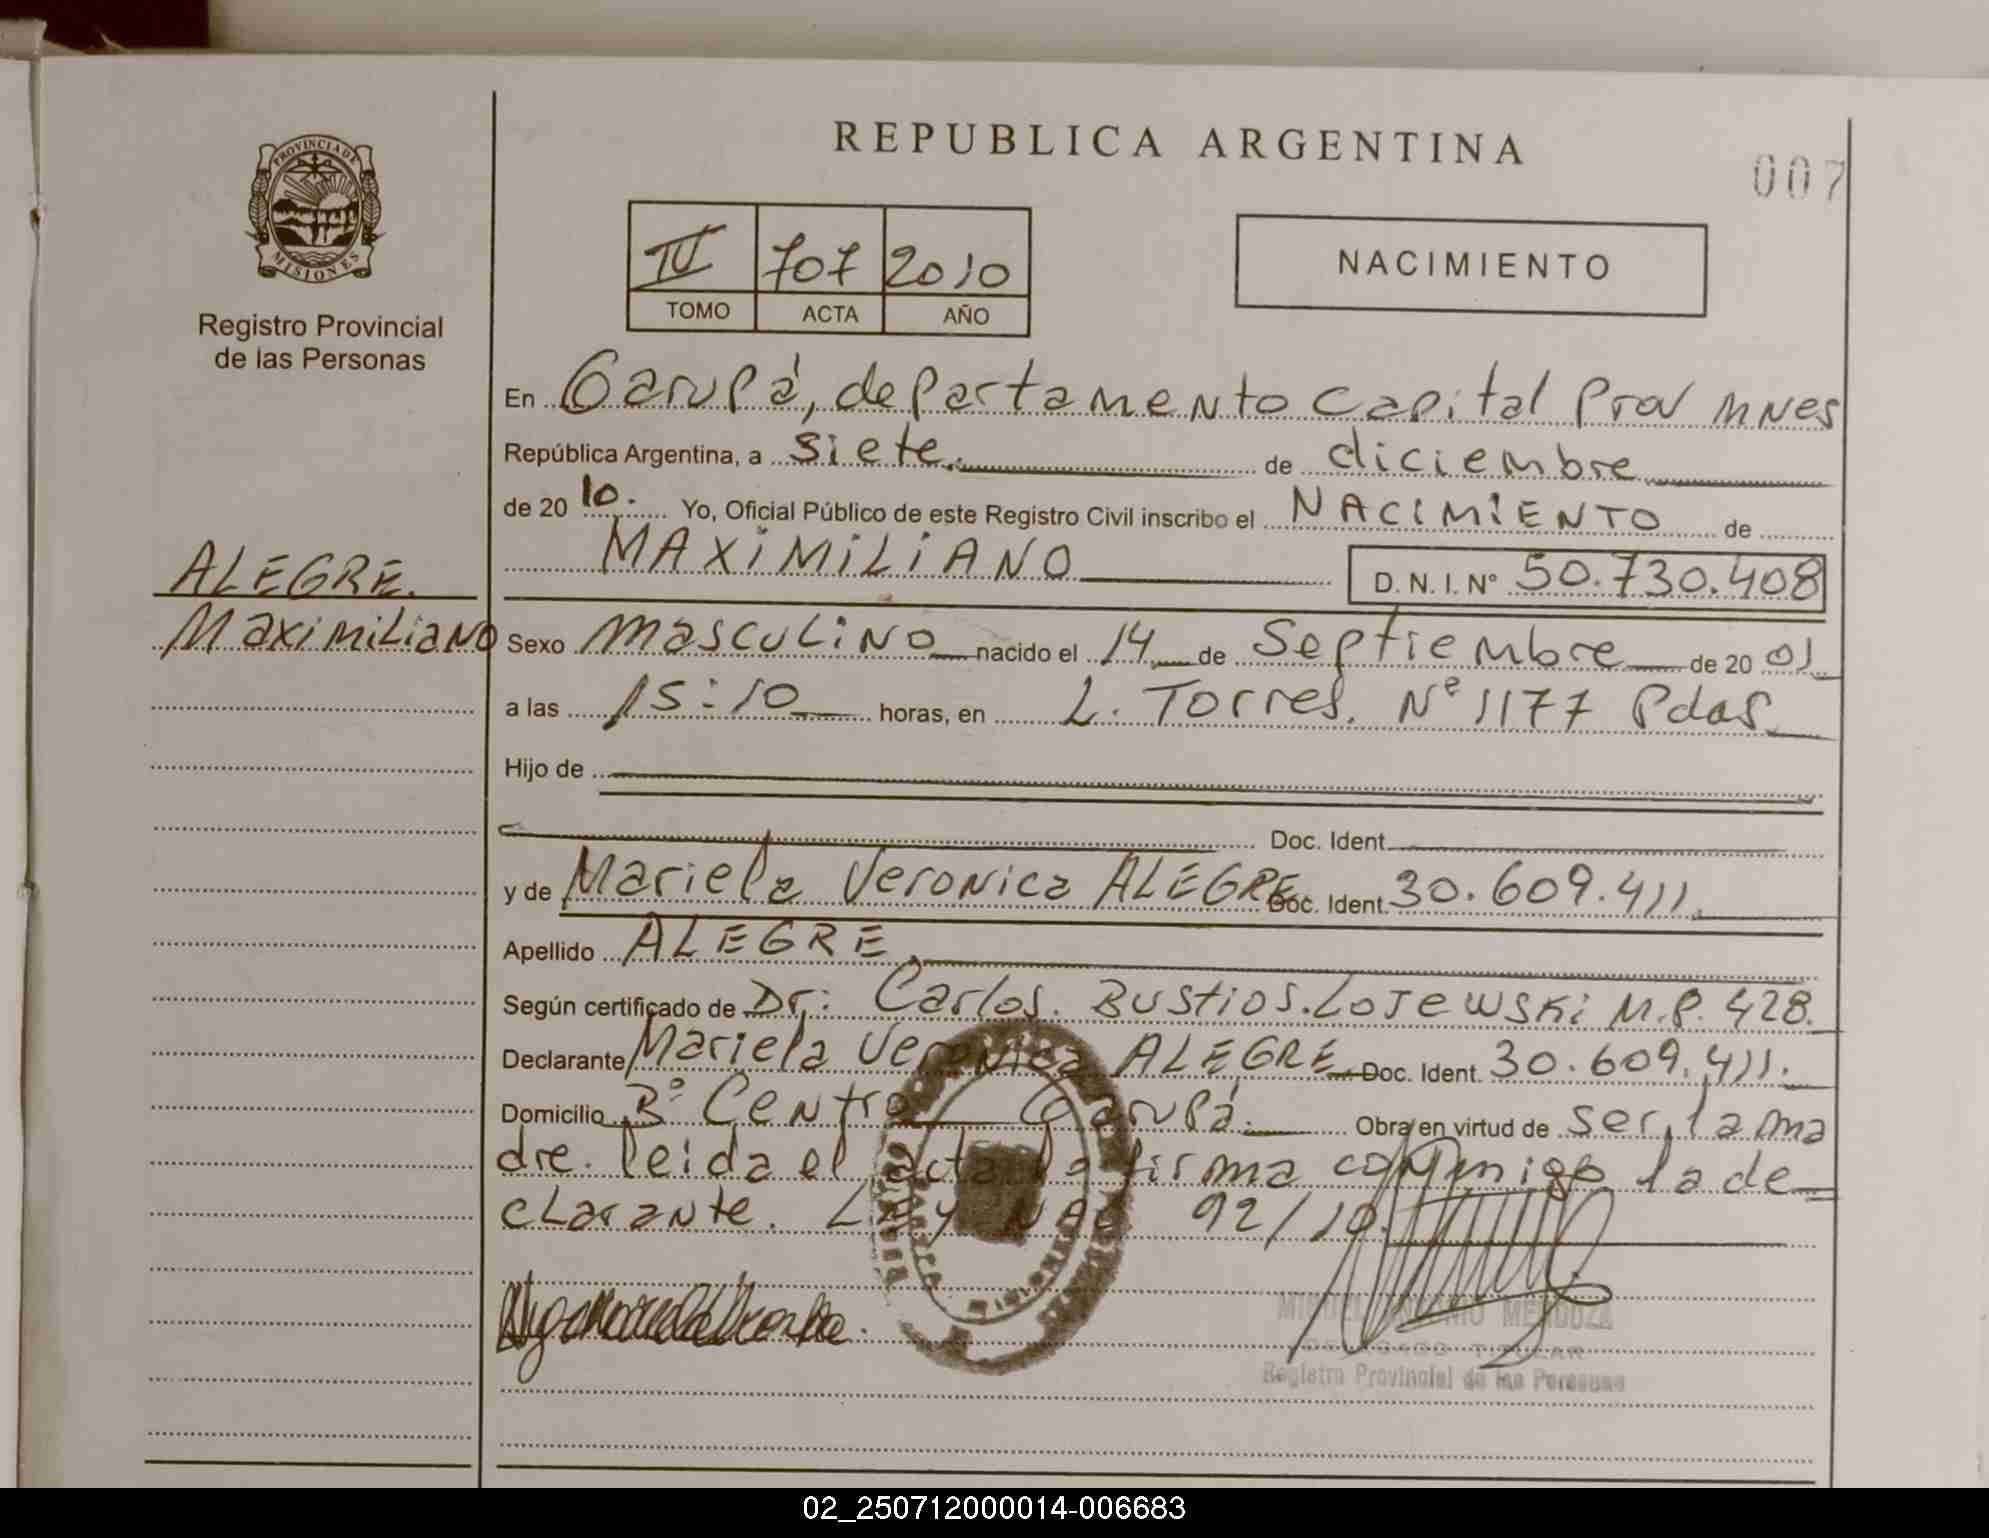 REPUBLICA ARGENTINA
007
PROVINCIA DE
MISIONES
Registro Provincial
de las Personas
IV 707 2010
TOMO ACTA AÑO
NACIMIENTO
En Garupá, departamento Capital Prov MNES
República Argentina, a siete. de diciembre
de 20 10. Yo, Oficial Público de este Registro Civil inscribo el NACIMIENTO de
MAXIMILIANO D. N. I. N° 50.730.408
ALEGRE.
Maximiliano
Sexo masculino nacido el 14 de Septiembre de 20 01
a las 15:10 horas, en L. Torres. Nº 1177 Pdas
Hijo de
Doc. Ident.
y de Mariela Veronica ALEGRE Doc. Ident. 30.609.411.
Apellido ALEGRE
Según certificado de Dr: Carlos. Bustios. Lojewski M.P. 428.
Declarante Mariela Veronica ALEGRE Doc. Ident. 30.609.411.
Domicilio Bº Centro Garupá. Obra en virtud de ser la ma
dre. leida el acta la firma conmigo la de
clarante. Ley NAC 92/10.
MIGUEL ANTONIO MENDOZA
DELEGADO TITULAR
Registro Provincial de las Personas
02_250712000014-006683